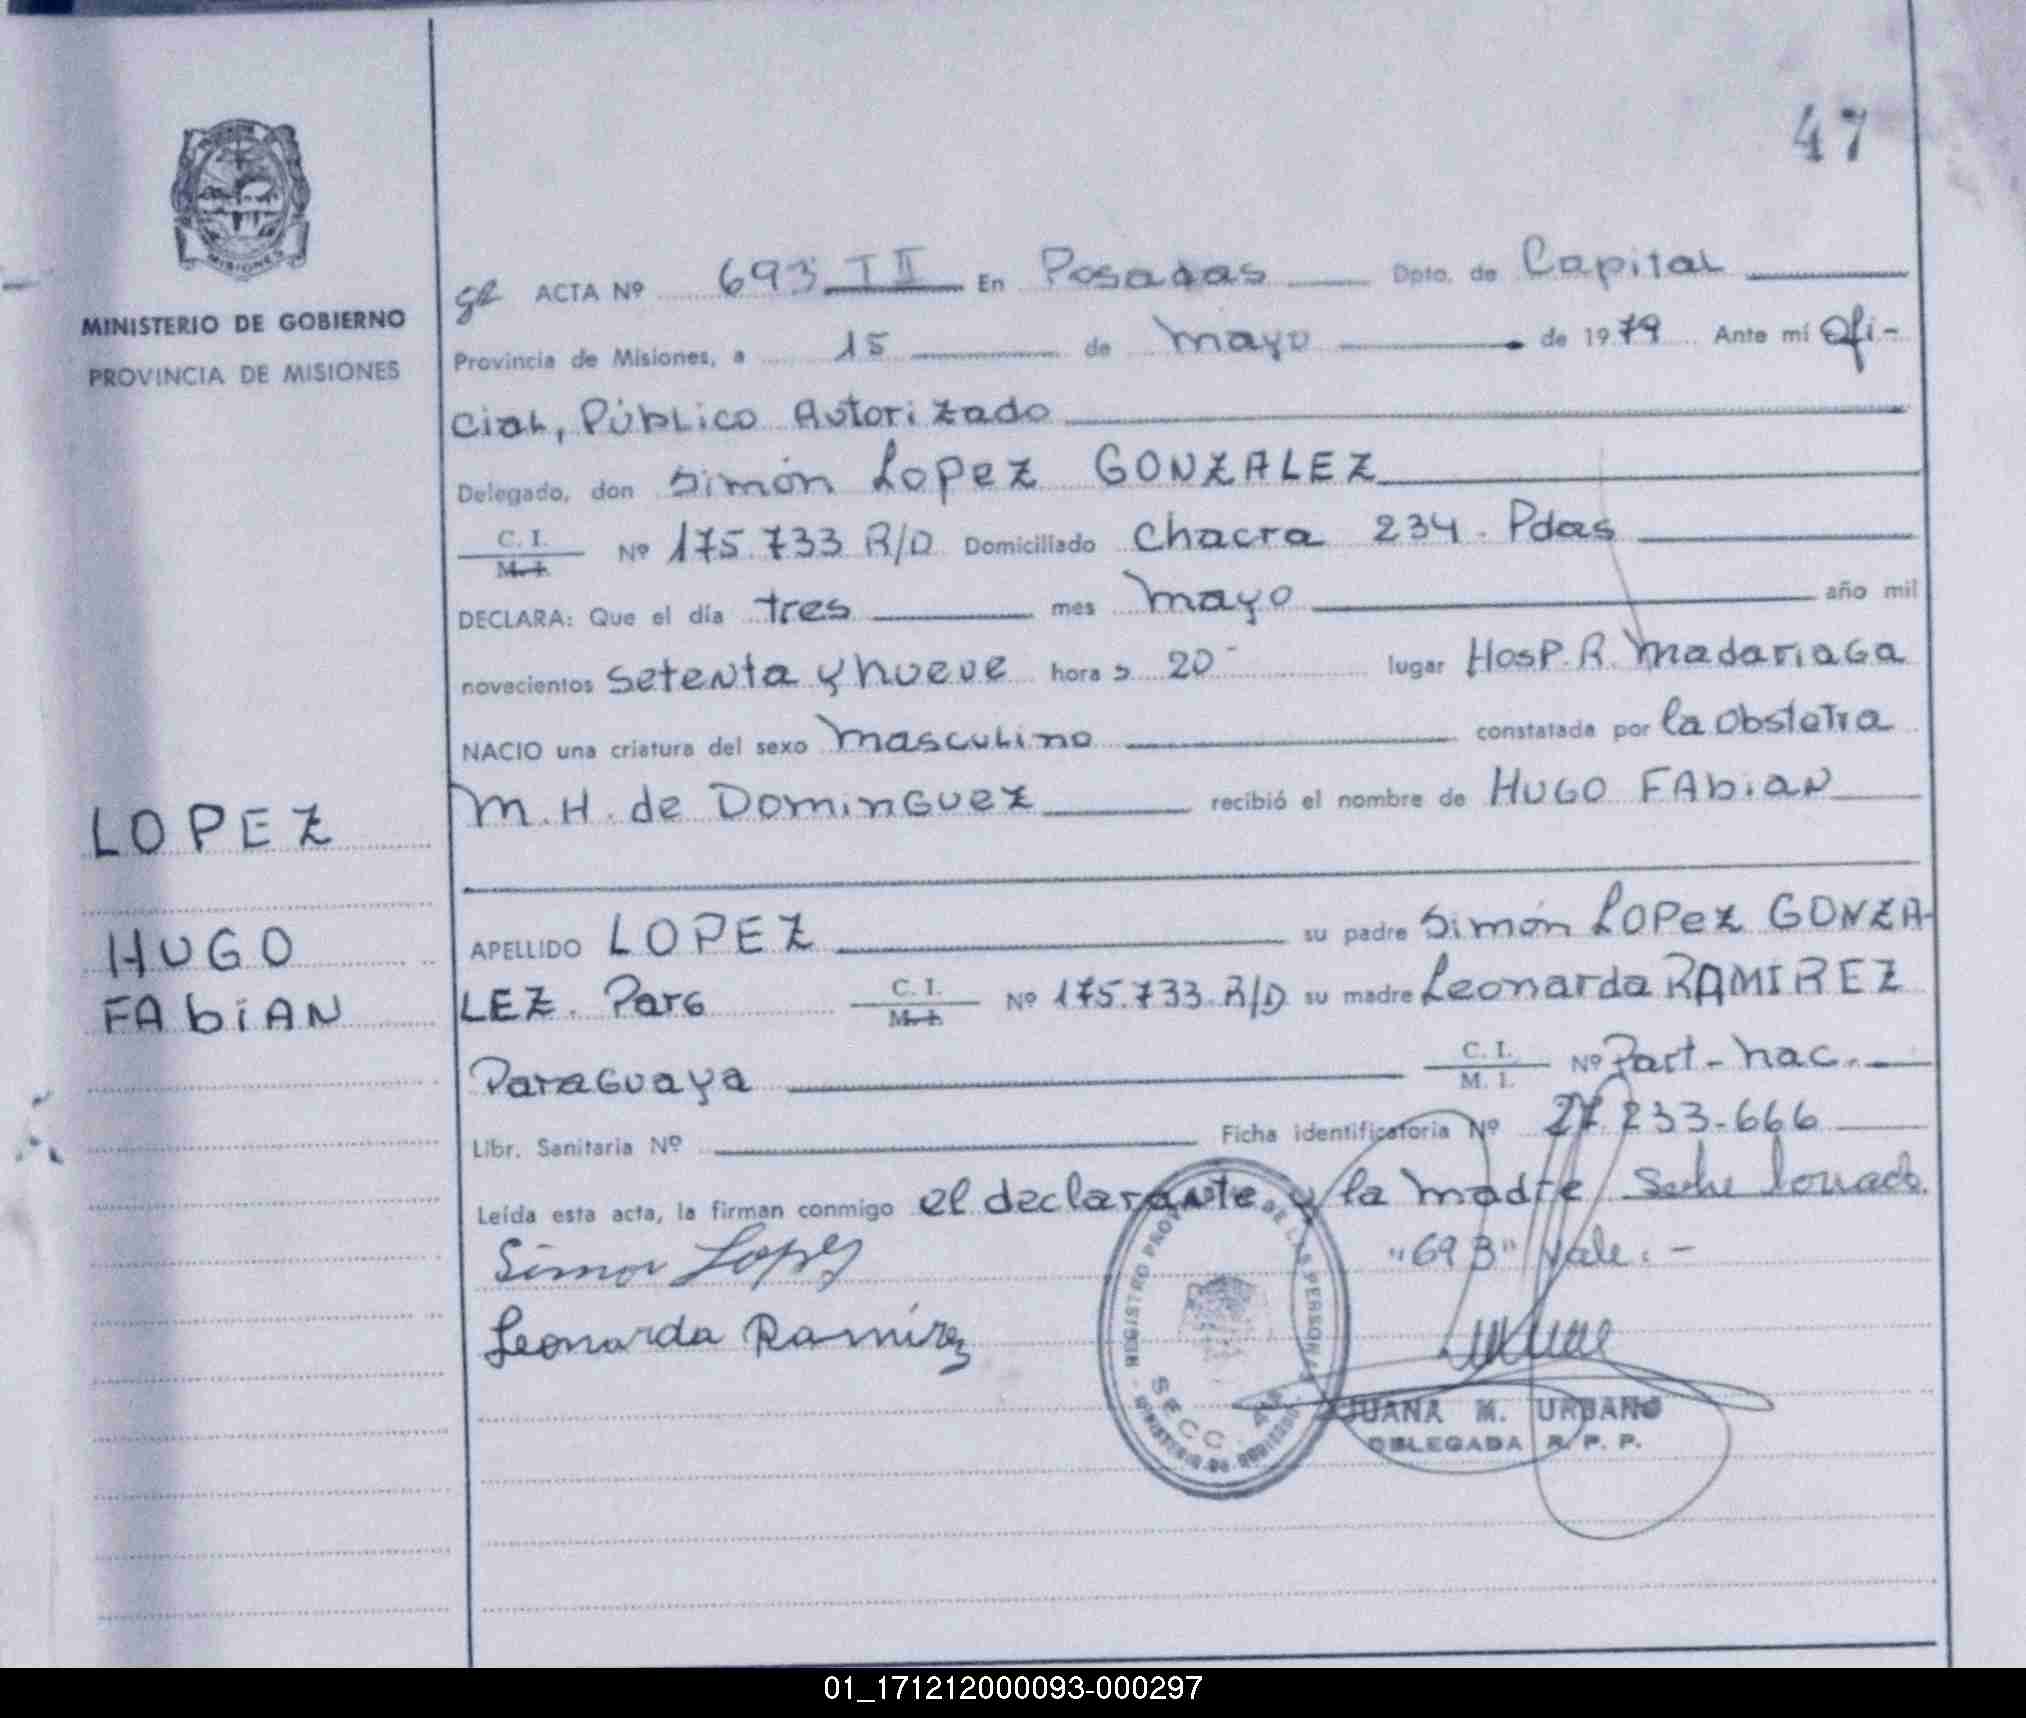 47
MINISTERIO DE GOBIERNO
PROVINCIA DE MISIONES
ACTA Nº 693 T II En Posadas Dpto. de Capital
Provincia de Misiones, a 15 de mayo de 1979 Ante mí Ofi-
cial, Público Autorizado
Delegado, don Simón Lopez GONZALEZ
C. I.
M. I. Nº 175.733 R/D Domiciliado Chacra 234. Pdas
DECLARA: Que el día tres mes mayo año mil
novecientos setenta y nueve hora s 20 - lugar Hosp. R. Madariaga
NACIO una criatura del sexo masculino constatada por la Obstetra
M. H. de Dominguez recibió el nombre de HUGO FAbiAN
LOPEZ
HUGO
FAbiAN
APELLIDO LOPEZ su padre Simón LOPez GONZA-
LEZ. Parg C. I.
M. I. Nº 175.733. R/D su madre Leonarda RAMIREZ
Paraguaya C. I.
M. I. Nº Part - nac.
Libr. Sanitaria Nº Ficha identificatoria Nº 27.233-666
Leída esta acta, la firman conmigo el declarante y la madre
"693" Vale. -
Simon Lopez
Leonarda Ramirez
REGISTRO DE LAS PERSONAS
SECC.
MINISTERIO DE GOBIERNO
JUANA M. URBANO
DELEGADA R. P. P.
01_171212000093-000297